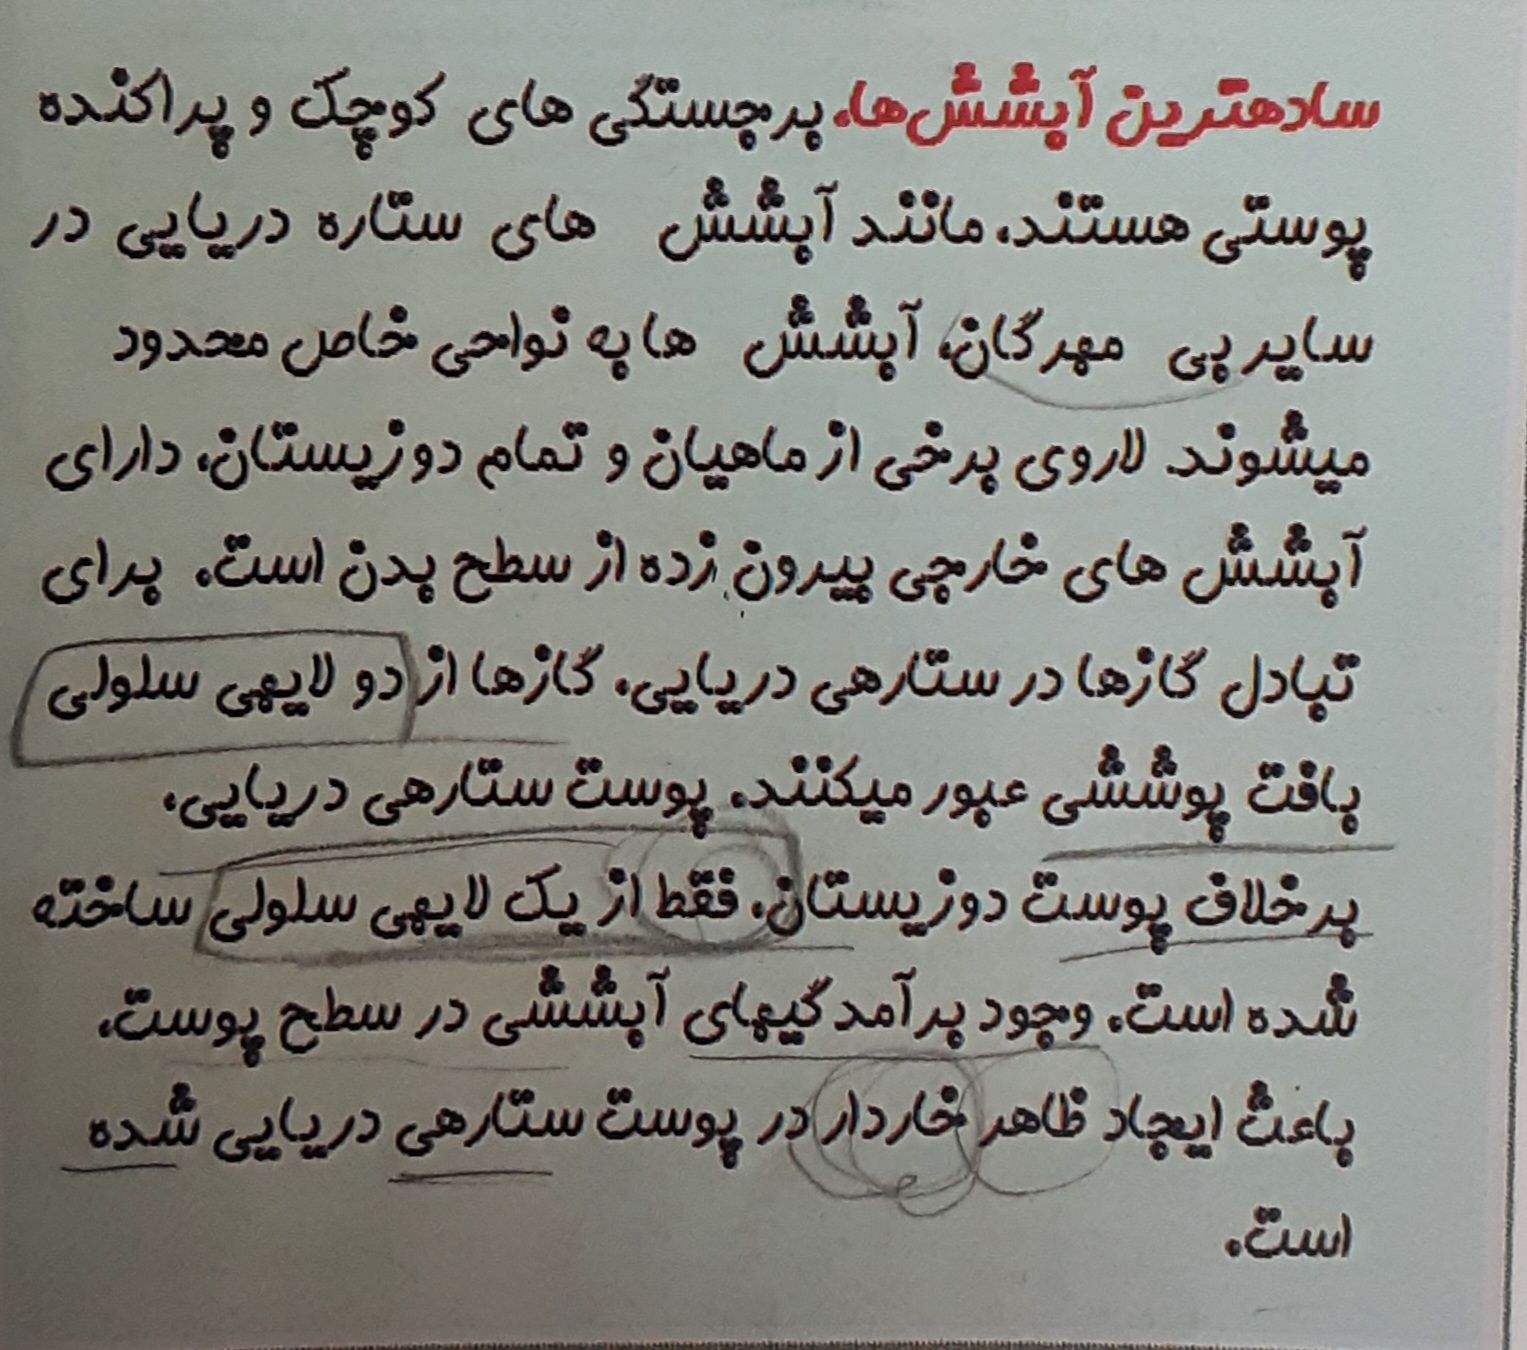 سادهترین آبشش‌ها، برجستگی های کوچک و پراکنده
پوستی هستند، مانند آبشش های ستاره دریایی در
سایر بی مهرگان، آبشش ها به نواحی خاص محدود
میشوند. لاروی برخی از ماهیان و تمام دوزیستان، دارای
آبشش های خارجی بیرون زده از سطح بدن است. برای
تبادل گازها در ستارهی دریایی، گازها از دو لایهی سلولی
بافت پوششی عبور میکنند. پوست ستارهی دریایی،
برخلاف پوست دوزیستان، فقط از یک لایهی سلولی ساخته
شده است. وجود برآمدگیهای آبششی در سطح پوست،
باعث ایجاد ظاهر خاردار در پوست ستارهی دریایی شده
است.